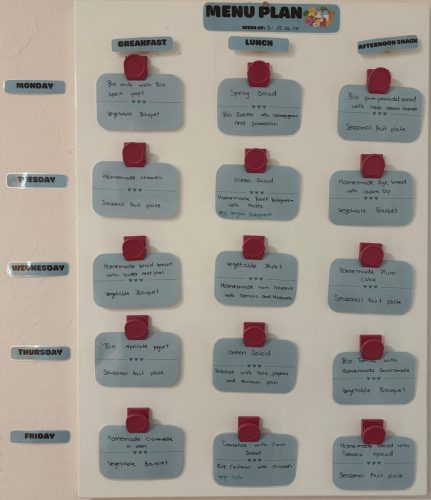 MENU PLAN
WEEK OF:
BREAKFAST
LUNCH
AFTERNOON SNACK
MONDAY
Bio milk with Bio
Spelt pops
Vegetable Bouquet
Spring Salad
Bio Risotto with champignons
and parmesan
Bio pumpernickel bread
with cream cheese
Seasonal fruit plate
TUESDAY
Homemade Semmeli
Seasonal fruit plate
Salad
Homemade Beef Bolognese
with Pasta
Vegi Vegan Bolognese
Homemade Rye bread
with Dip
Vegetable Bouquet
WEDNESDAY
Homemade bread
with butter and jam
Vegetable Bouquet
Vegetable Sticks
Homemade
with Tomato and Mozzarella
Homemade Plum
Cake
Seasonal fruit plate
THURSDAY
Bio Apricot yogurt
Seasonal fruit plate
Green Salad
with
and
Bio with
Homemade Guacamole
Vegetable Bouquet
FRIDAY
Homemade
in oven
Vegetable Bouquet
Tomatoe with Corn
Salad
Bio with Chicken
Vegi Tofu
Homemade bread with
spread
Seasonal fruit plate